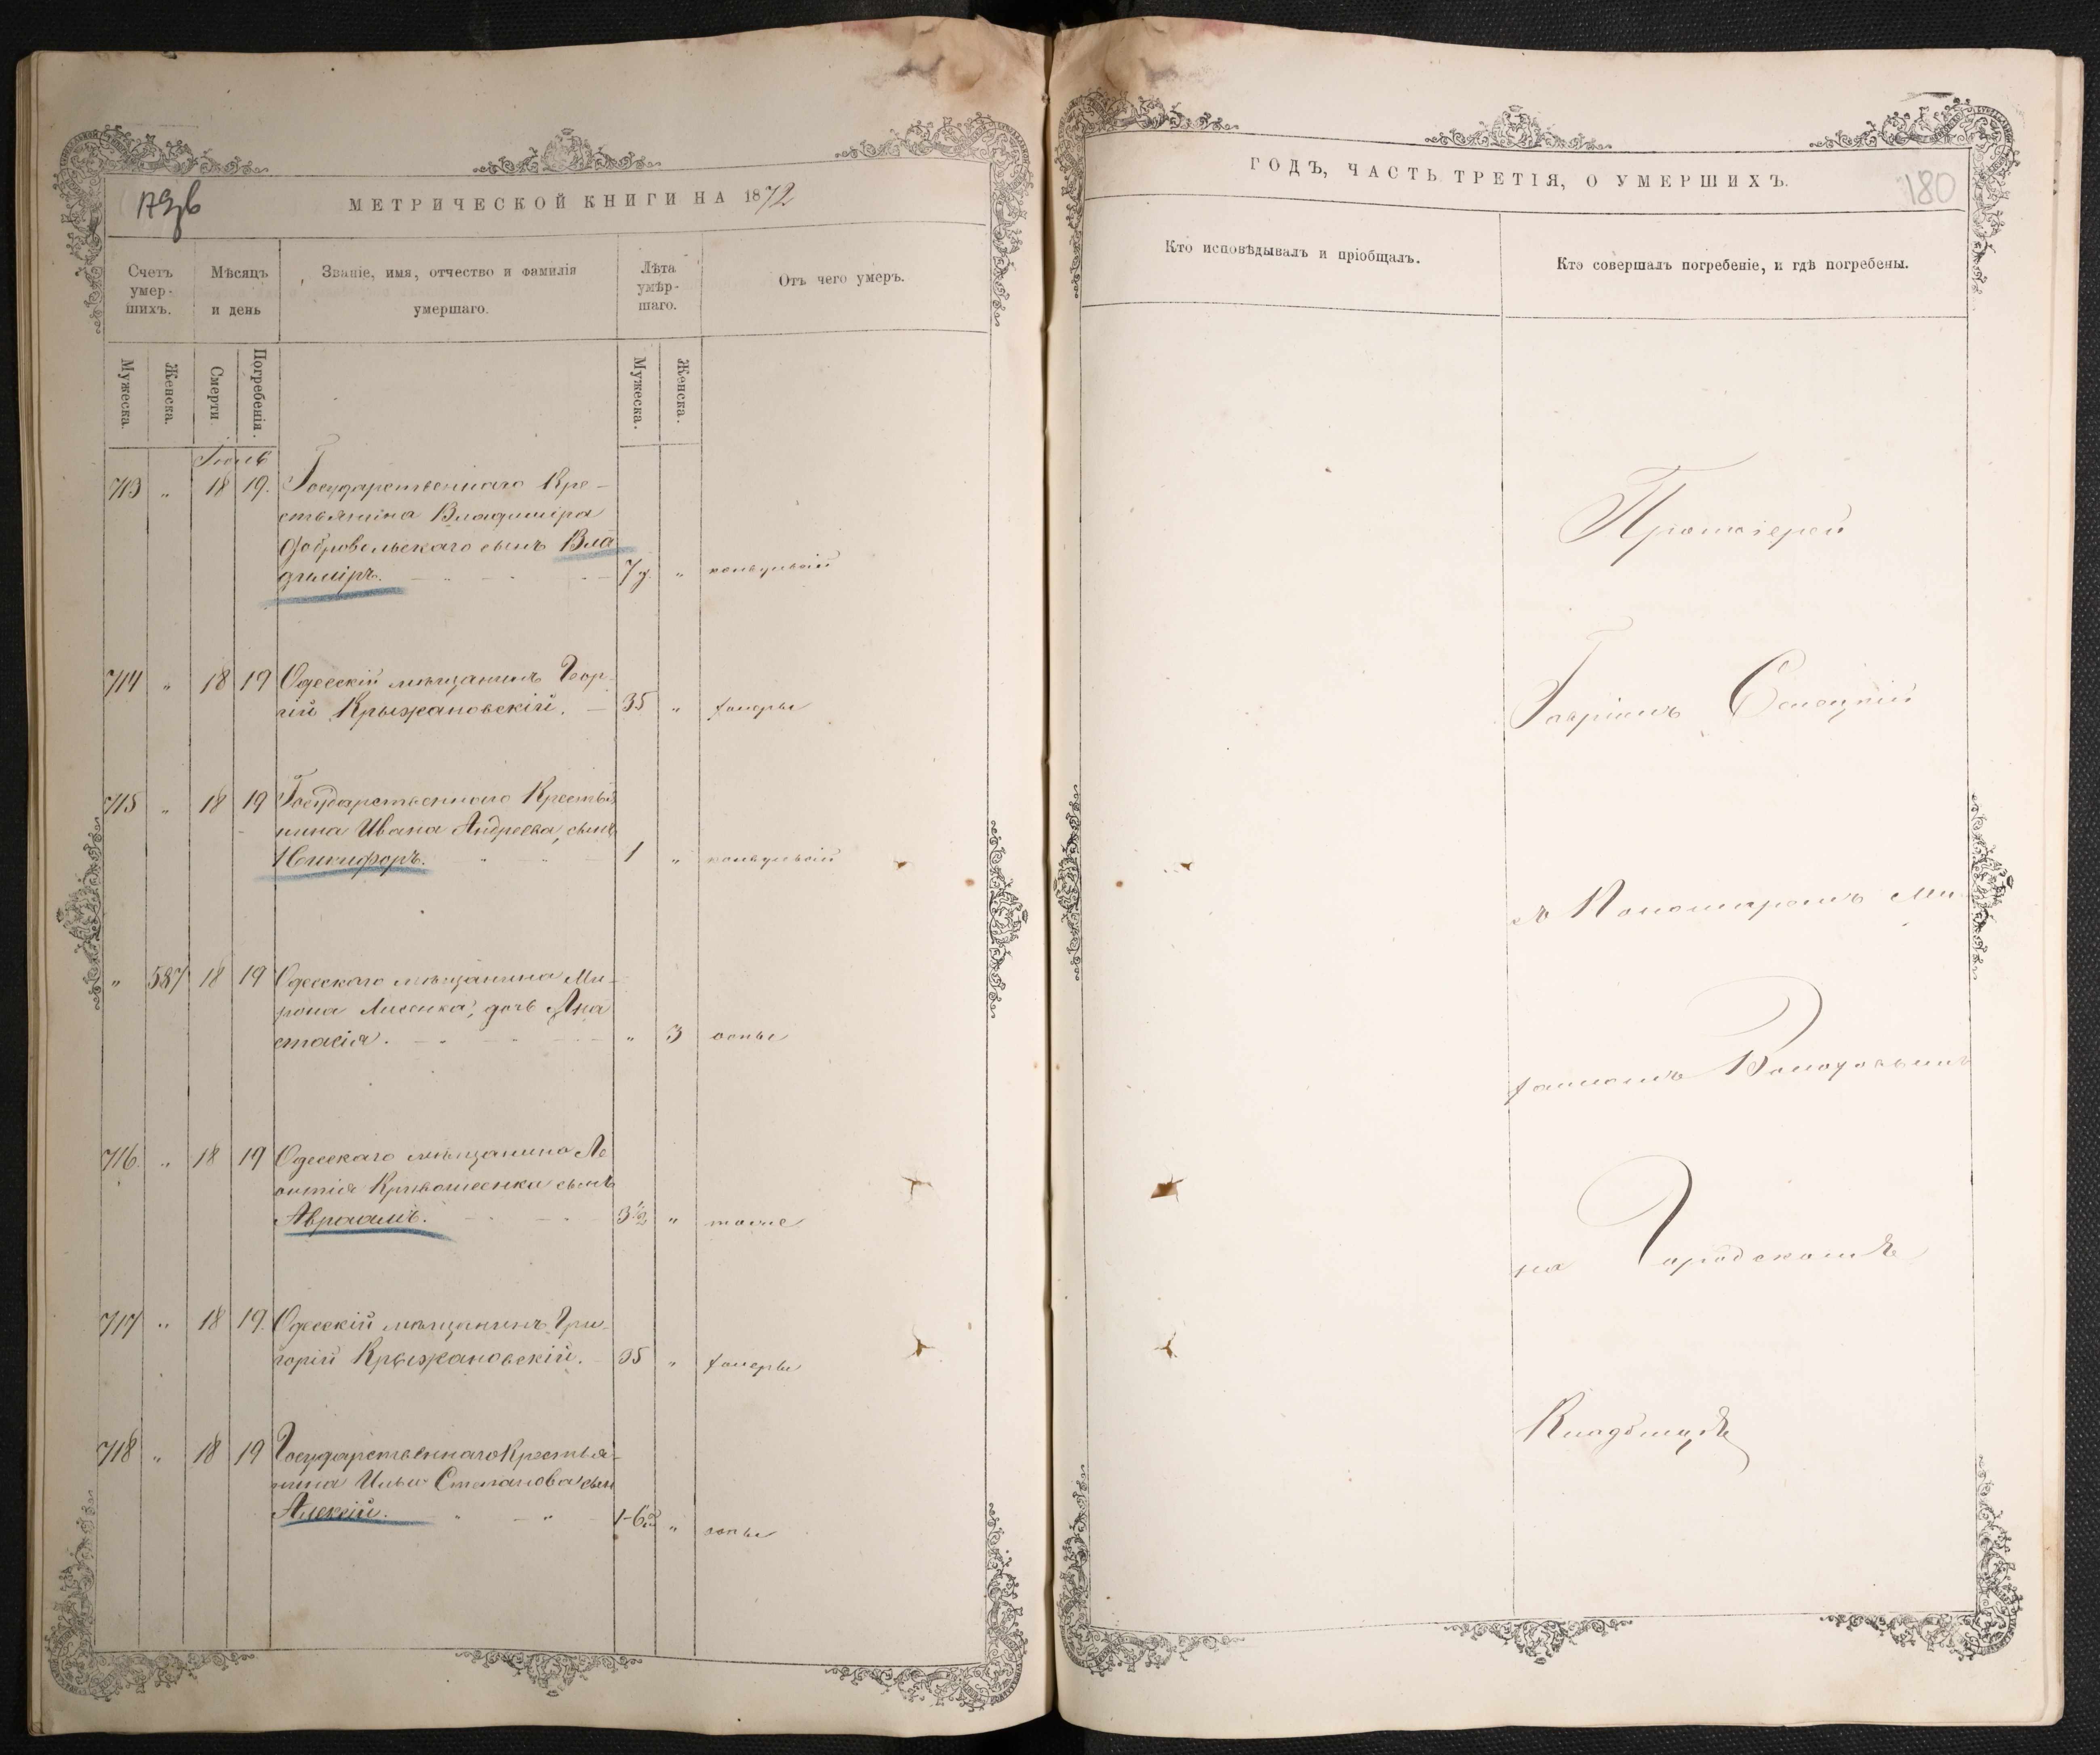 179 об
МЕТРИЧЕСКОЙ КНИГИ НА 1872
Счетъ умер-шихъ.
Мѣсяцъ и день
Званіе, имя, отчество и фамилія умершаго.
Лѣта умѣр-шаго.
Отъ чего умеръ.
Мужеска.
Женска.
Смерти.
Погребенія.
Мужеска.
Женска.
Іюль
713 " 18 19. Государственнаго Кре-
стьянина Владиміра
Добровольскаго сынъ Вла
диміръ. 7 д. " конвульсій
714 " 18 19 Одесскій мѣщанинъ Геор-
гій Крыжановскій. 35 " холеры
715 " 18 19 Государственнаго Крестья
нина Ивана Андреева, сынъ
Никифоръ. 1 " конвульсій
" 587 18 19 Одесскаго мѣщанина Ми-
рона Лисенка, дочь Ана
стасія. " 3 оспы
716. " 18 19 Одесскаго мѣщанина Ле
онтія Кривошеенка сынъ
Авраамъ. 3 1/2 " тоже
717 " 18 19. Одесскій мѣщанинъ Гри-
горій Крыжановскій. 35 " холеры
718 " 18 19 Государственнаго Крестья-
нина Ильи Степанова сынъ
Алексій. 1-6 м " оспы
ГОДЪ, ЧАСТЬ ТРЕТІЯ, О УМЕРШИХЪ.
180
Кто исповѣдывалъ и пріобщалъ.
Кто совершалъ погребеніе, и гдѣ погребены.
Протоіерей
Гавріилъ Селецкій
съ Пономаремъ Ми-
хаиломъ
на Городскомъ
Кладбищѣ